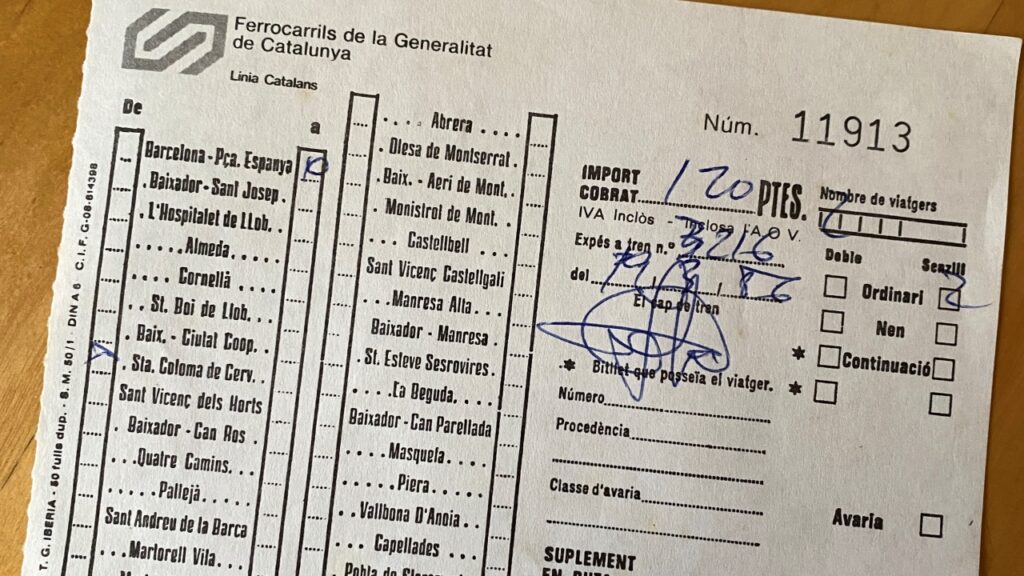 Ferrocarrils de la Generalitat
de Catalunya
Línia Catalans
De
a
Barcelona - Pça. Espanya
Baixador - Sant Josep.
L'Hospitalet de LLob.
Almeda
Cornellà
St. Boi de Lloh.
Baix. - Ciutat Coop.
Sta. Coloma de Cerv.
Sant Vicenç dels Horts
Baixador - Can Ros
Quatre Camins.
Pallejà
Sant Andreu de la Barca
Martorell Vila
Abrera
Olesa de Montserrat
Baix. - Aeri de Mont.
Monistrol de Mont.
Castellbell
Sant Vicenç Castellgali
Manresa Alta
Baixador - Manresa
St. Esteve Sesrovires
La Beguda
Baixador - Can Parellada
Masquefa
Piera
Vallbona D'Anoia
Capellades
Núm. 11913
IMPORT
COBRAT 120 PTES.
IVA Inclòs -
Expés a tren n.º 3216
del / / 86
El cap de tren
* Bitllet que posseïa el viatger.
Número
Procedència
Classe d'avaria
SUPLEMENT
Nombre de viatgers
Doble
Senzill
Ordinari 2
Nen
* Continuació
*
Avaria
T. G. IBERIA - 50 fulls dup. - S. M. 50/1 - DIN A 6 - C. I. F. G-08-614398